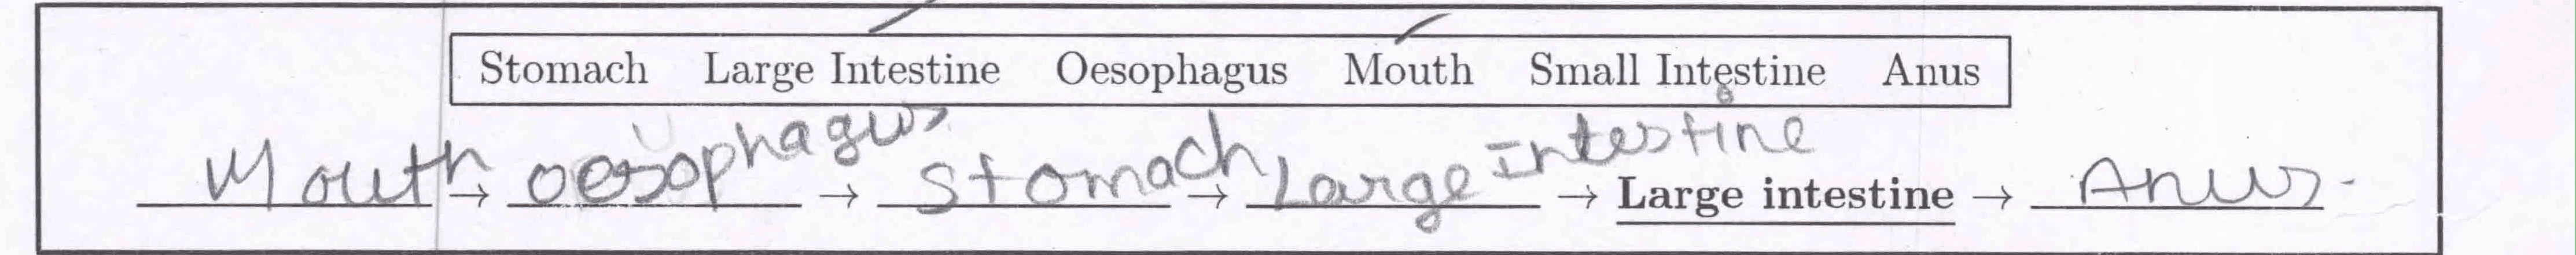 Stomach Large Intestine Oesophagus Mouth Small Intestine Anus
Mouth → oesophagus → Stomach → Large Intestine → Large intestine → Anus.